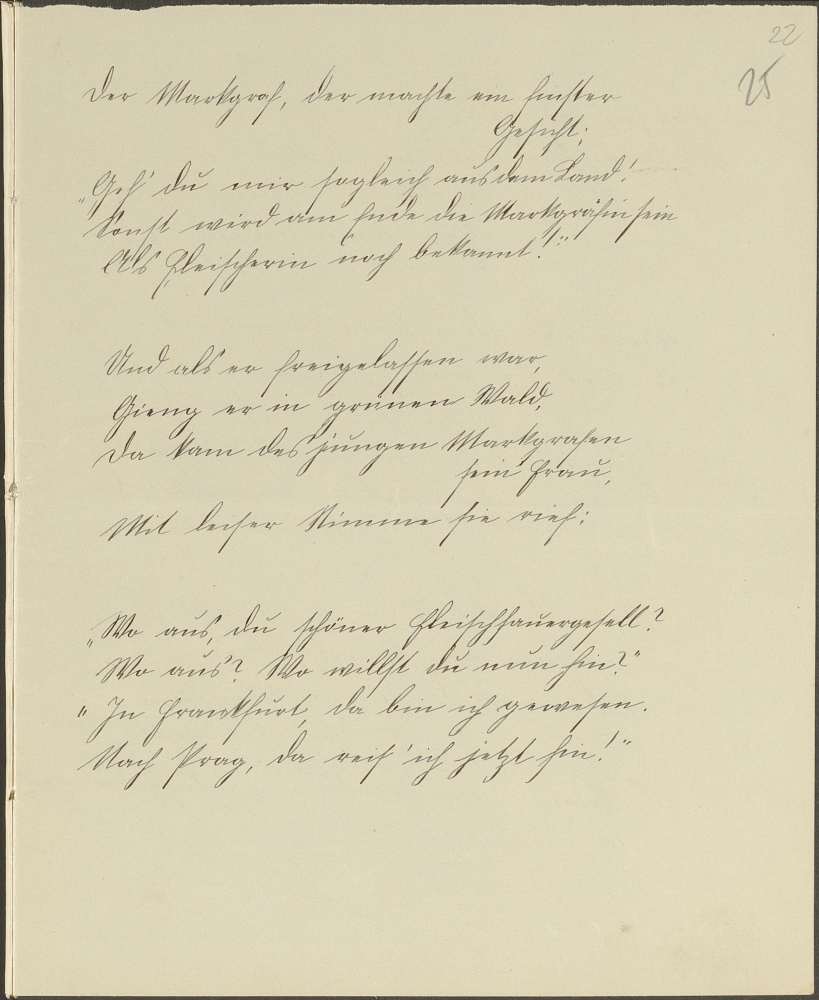 22
25
Der Markgraf, der machte ein finster
Gesicht;
„Geh' du mir sogleich aus dem Land!
Sonst wird am Ende die Markgräfin sein
Als Fleischerin noch bekannt!"
Und als er freigelassen war,
Gieng er in grünen Wald,
Da kam des jungen Markgrafen
sein Frau,
Mit leiser Stimme sie rief:
„Wo aus, du schöner Fleischhauergesell?
Wo aus? Wo willst du nun hin?"
"In Frankfurt, da bin ich gewesen.
Nach Prag, da reis' ich jetzt hin!"